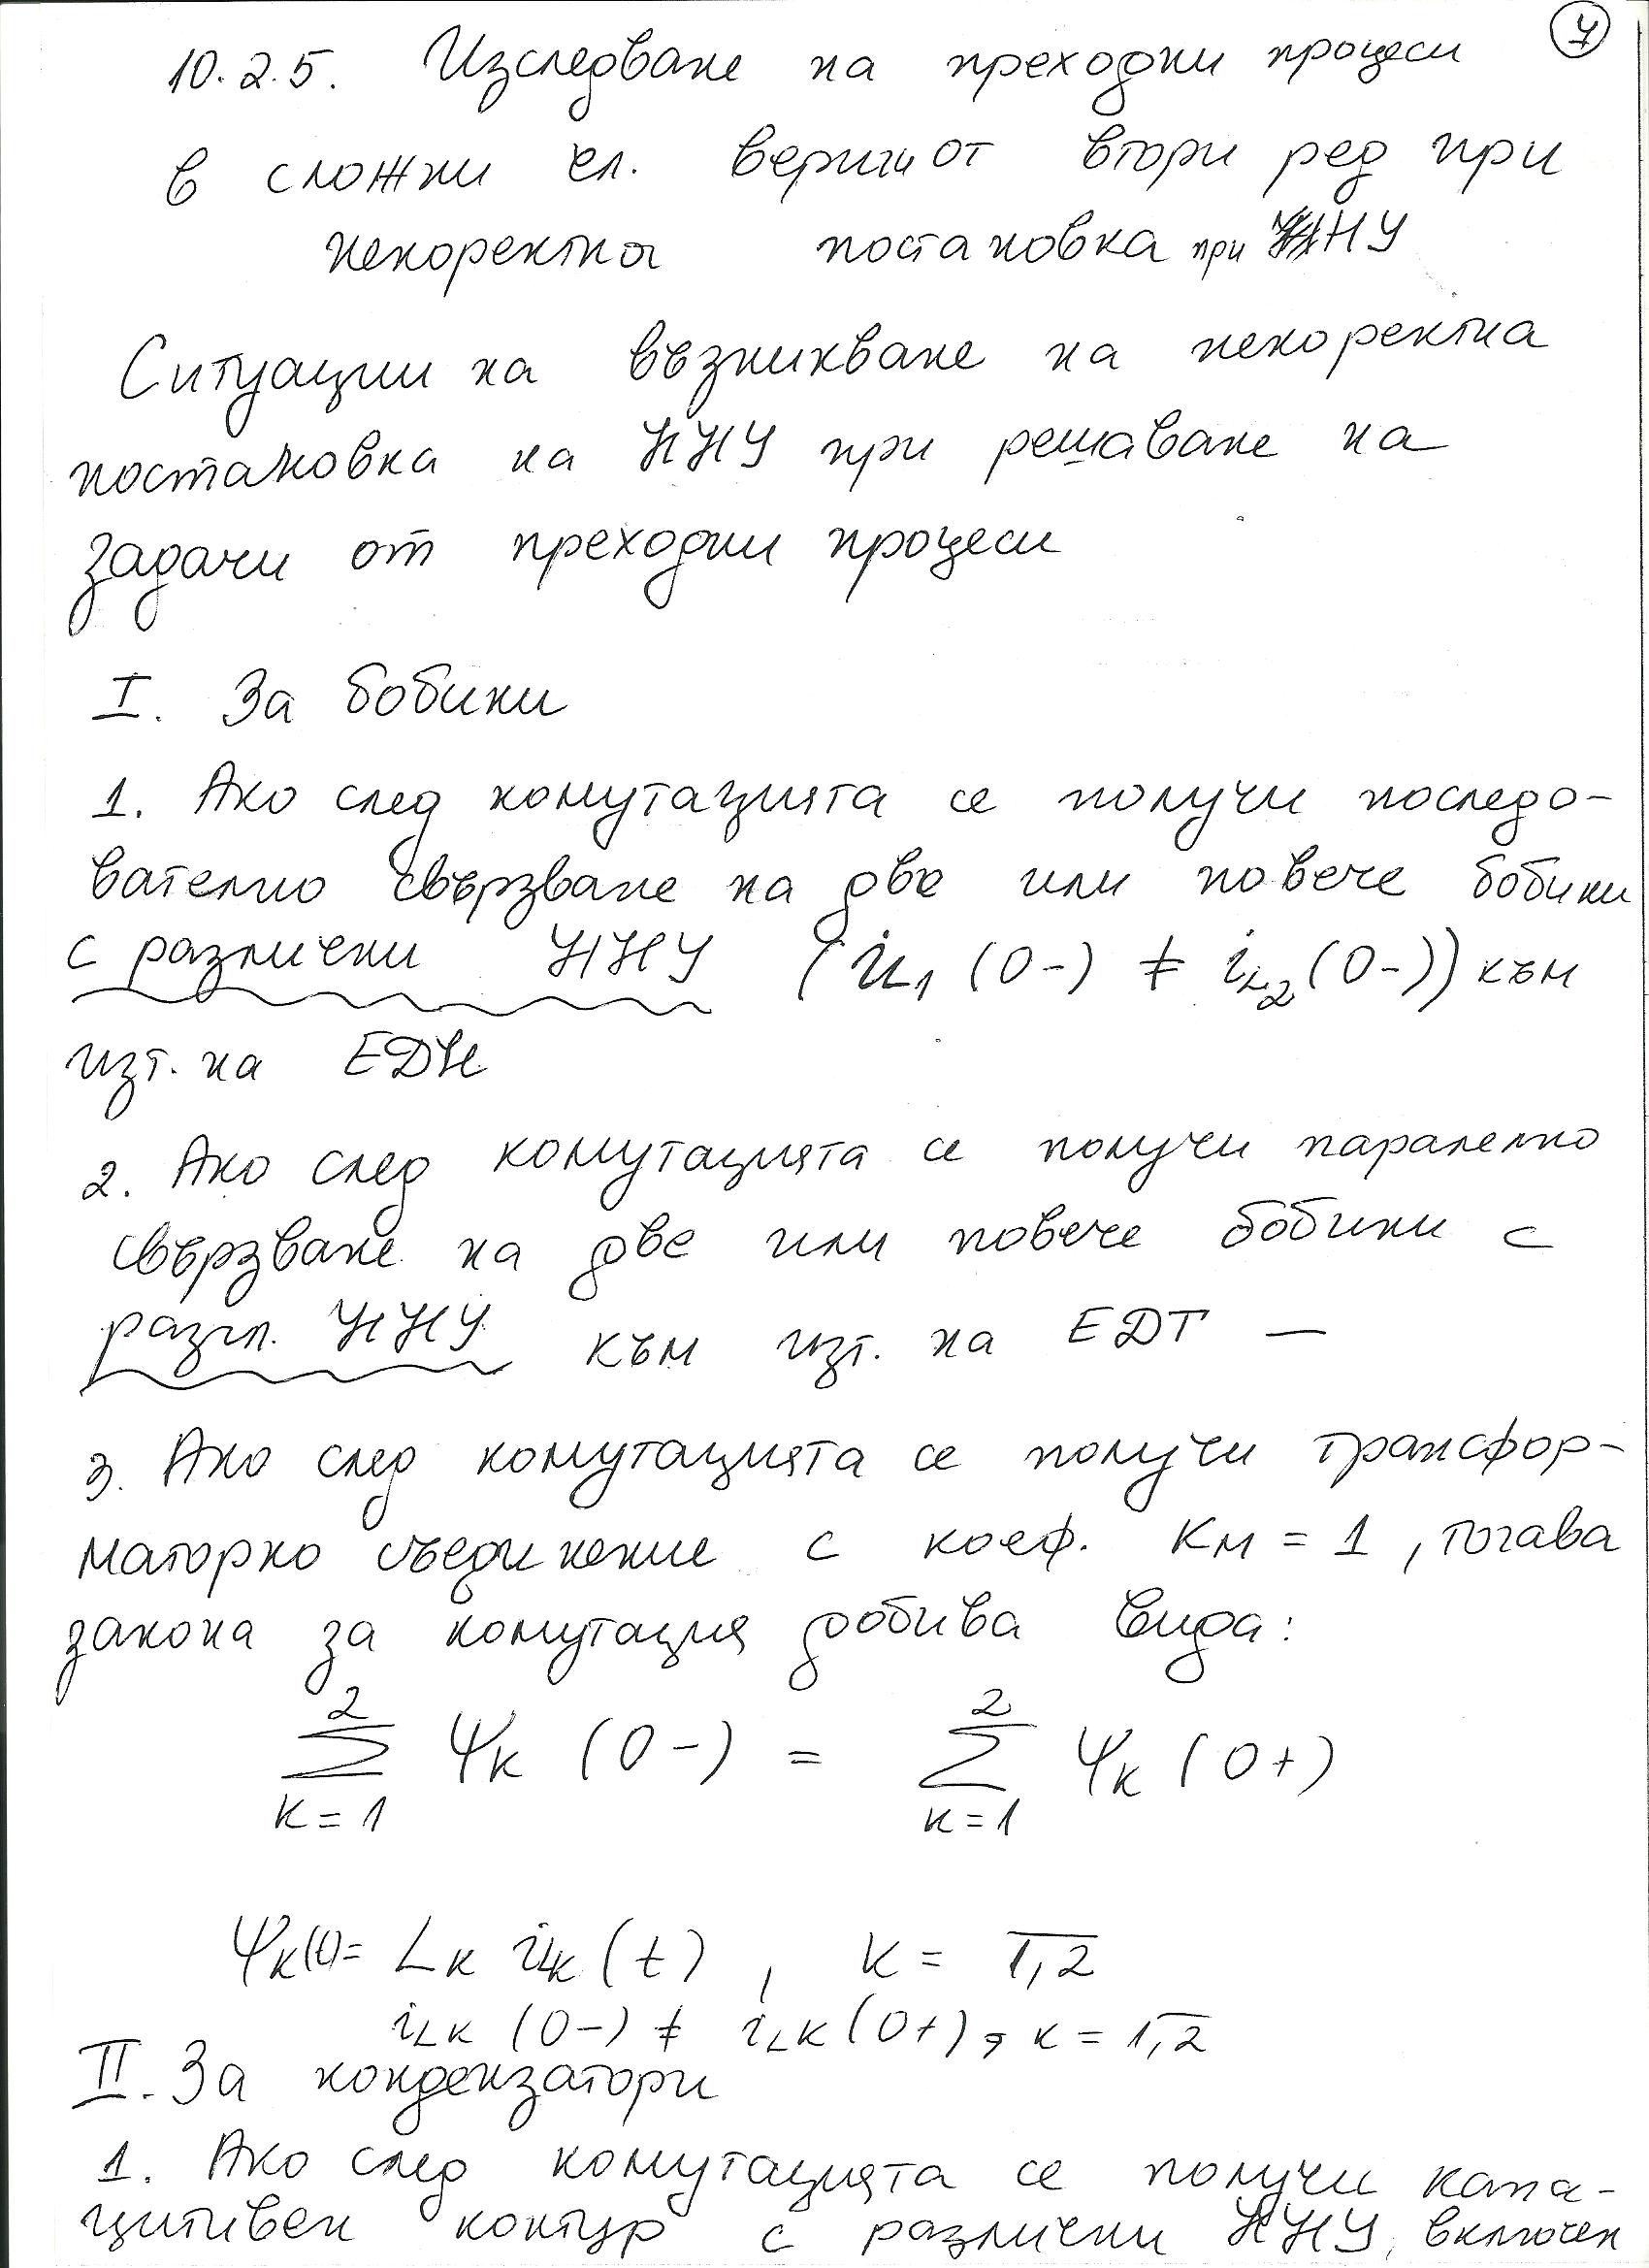 7
10.2.5. Изследване на преходни процеси
в сложни ел. вериги от втори ред при
некоректна постановка при ННУ
Ситуации на възникване на некоректна
постановка на ННУ при решаване на
задачи от преходни процеси
I. За бобини
1. Ако след комутацията се получи последо-
вателно свързване на две или повече бобини
с различни ННУ (iL1 (0-) ≠ iL2 (0-)) към
изт. на ЕДН
2. Ако след комутацията се получи паралелно
свързване на две или повече бобини с
разл. ННУ към изт. на ЕДТ —
3. Ако след комутацията се получи трансфор-
маторно съединение с коеф. Kм = 1, тогава
закона за комутация добива вида:
2 2
∑ Ψк (0-) = ∑ Ψк (0+)
к=1 к=1
Ψк(t)= Lк iLк (t), к = 1,2
iLк (0-) ≠ iLк (0+), к = 1,2
II. За кондензатори
1. Ако след комутацията се получи капа-
цитивен контур с различни ННУ, включен